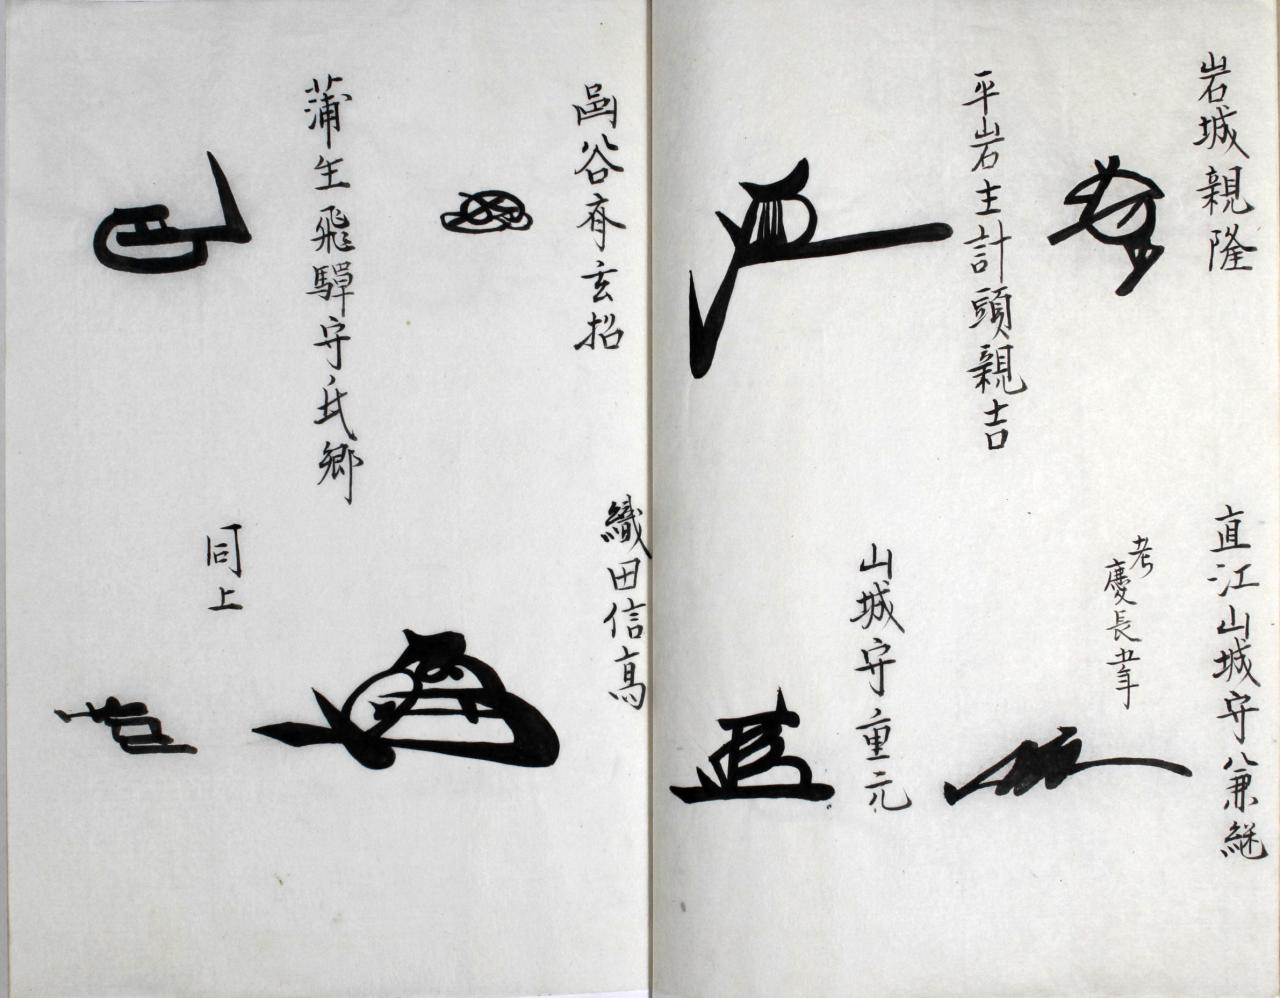 岩城親隆
直江山城守兼継
考
慶長五年
平岩主計頭親吉
山城守重元
谷斎玄招
織田信高
蒲生飛騨守氏郷
同上